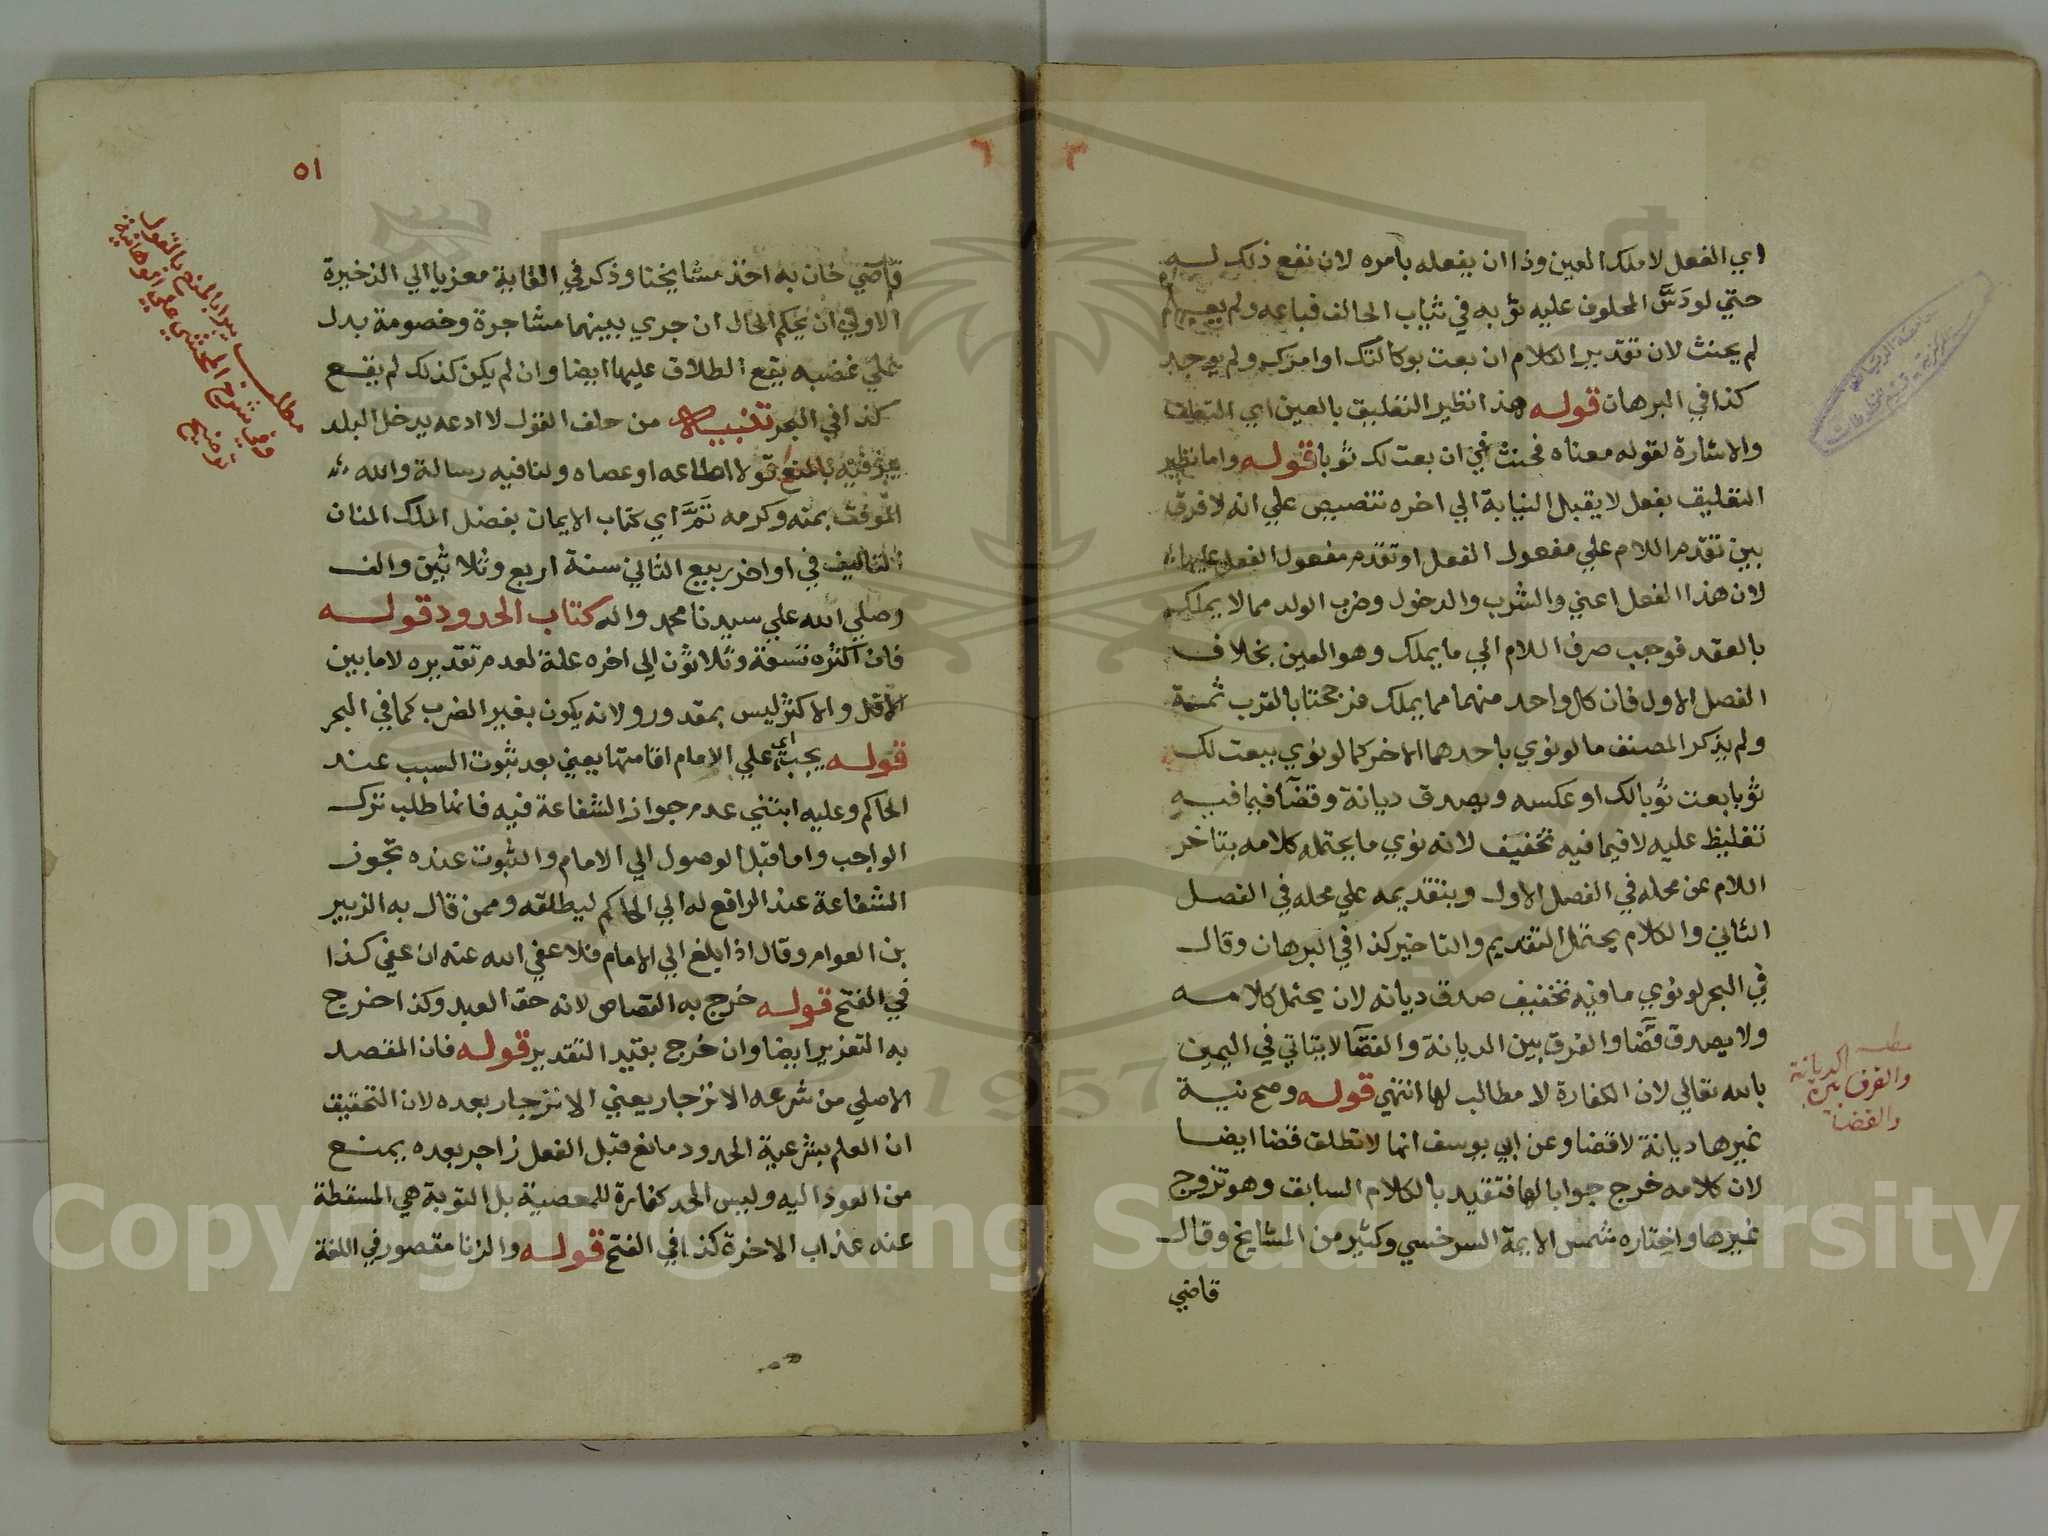 اي الفعل لا ملك العين وذا ان يفعله بامره لان نفع ذلك له
حتي لو دَسَّ المحلوف عليه ثوبه في ثياب الحالف فباعه ولم يعلم
لم يحنث لان تقدير الكلام ان بعت بوكالتك او امرك ولم يوجد
كذا في البرهان قوله هذا نظير التعليق بالعين اي التعلق
والاشارة لقوله معناه فحنث في ان بعت لك ثوبا قوله واما نظير
التعليق بفعل لا يقبل النيابة الي اخره تنصيص علي انه لا فرق
بين تقدم اللام علي مفعول الفعل او تقدم مفعول الفعل عليها
لان هذا الفعل اعني والشرب والدخول وضرب الولد مما لا يملك
بالعقد فوجب صرف اللام الي ما يملك وهو العين بخلاف
الفصل الاول فان كل واحد منهما مما يملك فرجحنا بالقرب ثمة
ولم يذكر المصنف ما لو نوي باحدهما الاخر كما لو نوي ببعت لك
ثوبا بعت ثوبا لك او عكسه ويصدق ديانة وقضآ فيما فيه
تغليظ عليه لا فيما فيه تخفيف لانه نوي ما يحتمله كلامه بتاخر
اللام عن محله في الفصل الاول وبتقديمه علي محله في الفصل
الثاني والكلام يحتمل التقديم والتاخير كذا في البرهان وقال
في البحر لو نوي ما فيه تخفيف صدق ديانه لان يحتمل كلامه
ولا يصدق قضآ والفرق بين الديانة والقضآ لا يتاتي في اليمين
بالله تعالي لان الكفارة لا مطالب لها انتهي قوله وصح نية
غيرها ديانة لا قضا وعن ابي يوسف انها لا تطلق قضا ايضا
لان كلامه خرج جوابا لها فتقيد بالكلام السابق وهو تزوج
غيرها واختاره شمس الايمة السرخسي وكثير من المشايخ وقال
قاضي
مطلب
والفرق بين الديانة
والقضا
٥١
قاضي خان به اخذ مشايخنا وذكر في الغاية معزيا الي الذخيرة
الاولي ان يحكم الحال ان جري بينهما مشاجرة وخصومة يدل
علي غضبه يقع الطلاق عليها ايضا وان لم يكن كذلك لم يقع
كذا في البحر تنبيه من حلف القول لا ادعه يدخل البلد
يبر فيه بالمنع قولا اطاعه او عصاه ولنا فيه رسالة والله
الموفق بمنه وكرمه تَمَّ اي كتاب الايمان بفضل الملك المنان
التاليف في اواخر ربيع الثاني سنة اربع وثلاثين والف
وصلي الله علي سيدنا محمد واله كتاب الحدود قوله
فان اكثره تسعة وثلاثون الي اخره علة لعدم تقديره لا ما بين
الاقل والاكثر ليس بمقدور ولانه يكون بغير الضرب كما في البحر
قوله يجب اي علي الامام اقامتها يعني بعد ثبوت السبب عند
الحاكم وعليه ابتني عدم جواز الشفاعة فيه فانها طلب ترك
الواجب واما قبل الوصول الي الامام والثبوت عنده تجوز
الشفاعة عند الرافع له الي الحاكم ليطلقه وممن قال به الزبير
بن العوام وقال اذا بلغ الي الامام فلا عفي الله عنه ان عفي كذا
في الفتح قوله خرج به القصاص لانه حق العبد وكذا خرج
به التعزير ايضا وان خرج بقيد التقدير قوله فان المقصد
الاصلي من شرعه الانزجار يعني الانزجار بعده لان التحقيق
ان العلم بشرعية الحدود مانع قبل الفعل زاجر بعده يمنع
من العود اليه وليس الحد كفارة للمعصية بل التوبة هي المسقطة
عنه عذاب الاخرة كذا في الفتح قوله والزنا مقصور في اللغة
مطلب يبر بالمنع بالقول
وفي شرح المحشي علي الوهبانية
توضيح
Copyright © King Saud University
1957